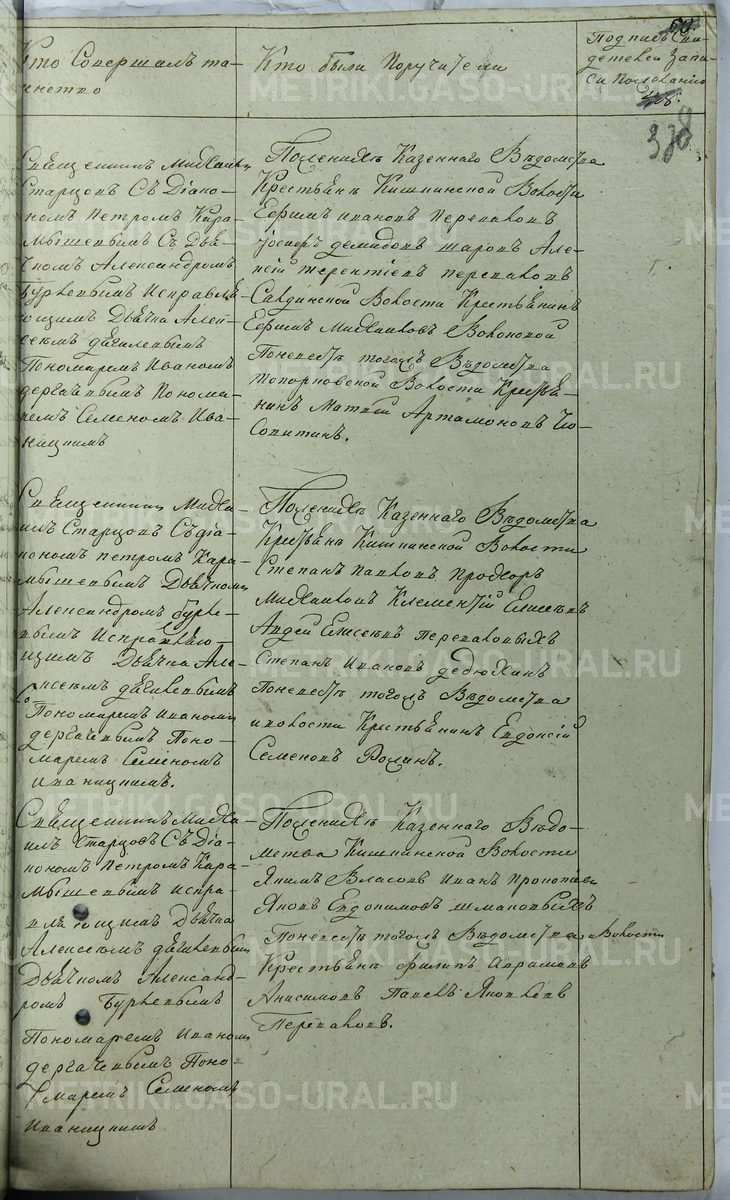 50.
Кто Совершалъ та-
инство
Кто были Поручители
Подпись Сви-
детелей Запи-
си Пожеланию
Священникъ Михаилъ
Старцовъ Съ Діако-
номъ Петромъ Кара-
мышевымъ Съ Дьяч-
комъ Александромъ
Бурлевымъ Исправля-
ющимъ Дьячка Алек-
сеемъ
Пономаремъ Иваномъ
дергачевымъ Понома-
ремъ Семеномъ Ива-
ницкимъ
Поженихѣ Казеннаго Вѣдомства
Крестьянѣ Кишкинской Волости
Ефимъ Ивановъ Перепаловъ
Іосафъ демидовъ шаровъ Алек-
сій терентіевъ перепаловъ
Салдинской Волости Крестьянинъ
Ефимъ Михаиловъ
Поневестѣ тогожъ Вѣдомства
топорковской Волости Крестья-
нинъ Матвей Артамоновъ
Священникъ Михаи-
лъ Старцовъ Съ діа-
кономъ петромъ Кара-
мышевымъ Дьячкомъ
Александромъ бурле-
вымъ Исправляю-
щимъ Дьячка Але-
ксеемъ
Пономаремъ иваномъ
дергачевымъ Поно-
маремъ Семеномъ
иваницкимъ.
Поженихѣ Казеннаго Вѣдомства
Крестьянѣ Кишкинской Волости
Степанъ Павловъ Прохоръ
Михаиловъ Клементій Елисеевъ
Авдей Елисеевъ перепаловыхъ
Степанъ Ивановъ дедюхинъ
Поневестѣ тогожъ Вѣдомства
иволости Крестьянинъ Евдокій
Семеновъ
Священникъ Михаи-
лъ Старцовъ Съ Діа-
кономъ Петромъ Кара-
мышевымъ испра-
вляющимъ Дьячка
Алексеемъ
Дьячкомъ Александ-
ромъ Бурлевымъ
Пономаремъ Иваномъ
дергачевымъ Поно-
маремъ Семеномъ
Иваницкимъ
Поженихѣ Казеннаго Вѣдо-
мства Кишкинской Волости
Якимъ Власовъ Иванъ Прокопьевъ
Яковъ Евдокимовъ шмаковыхъ
Поневестѣ тогожъ Вѣдомства Волости
Крестьянѣ Филипъ Аврамовъ
Анисимовъ Павелъ Яковлевъ
Перепаловъ.
METRIKI.GASO-URAL.RU